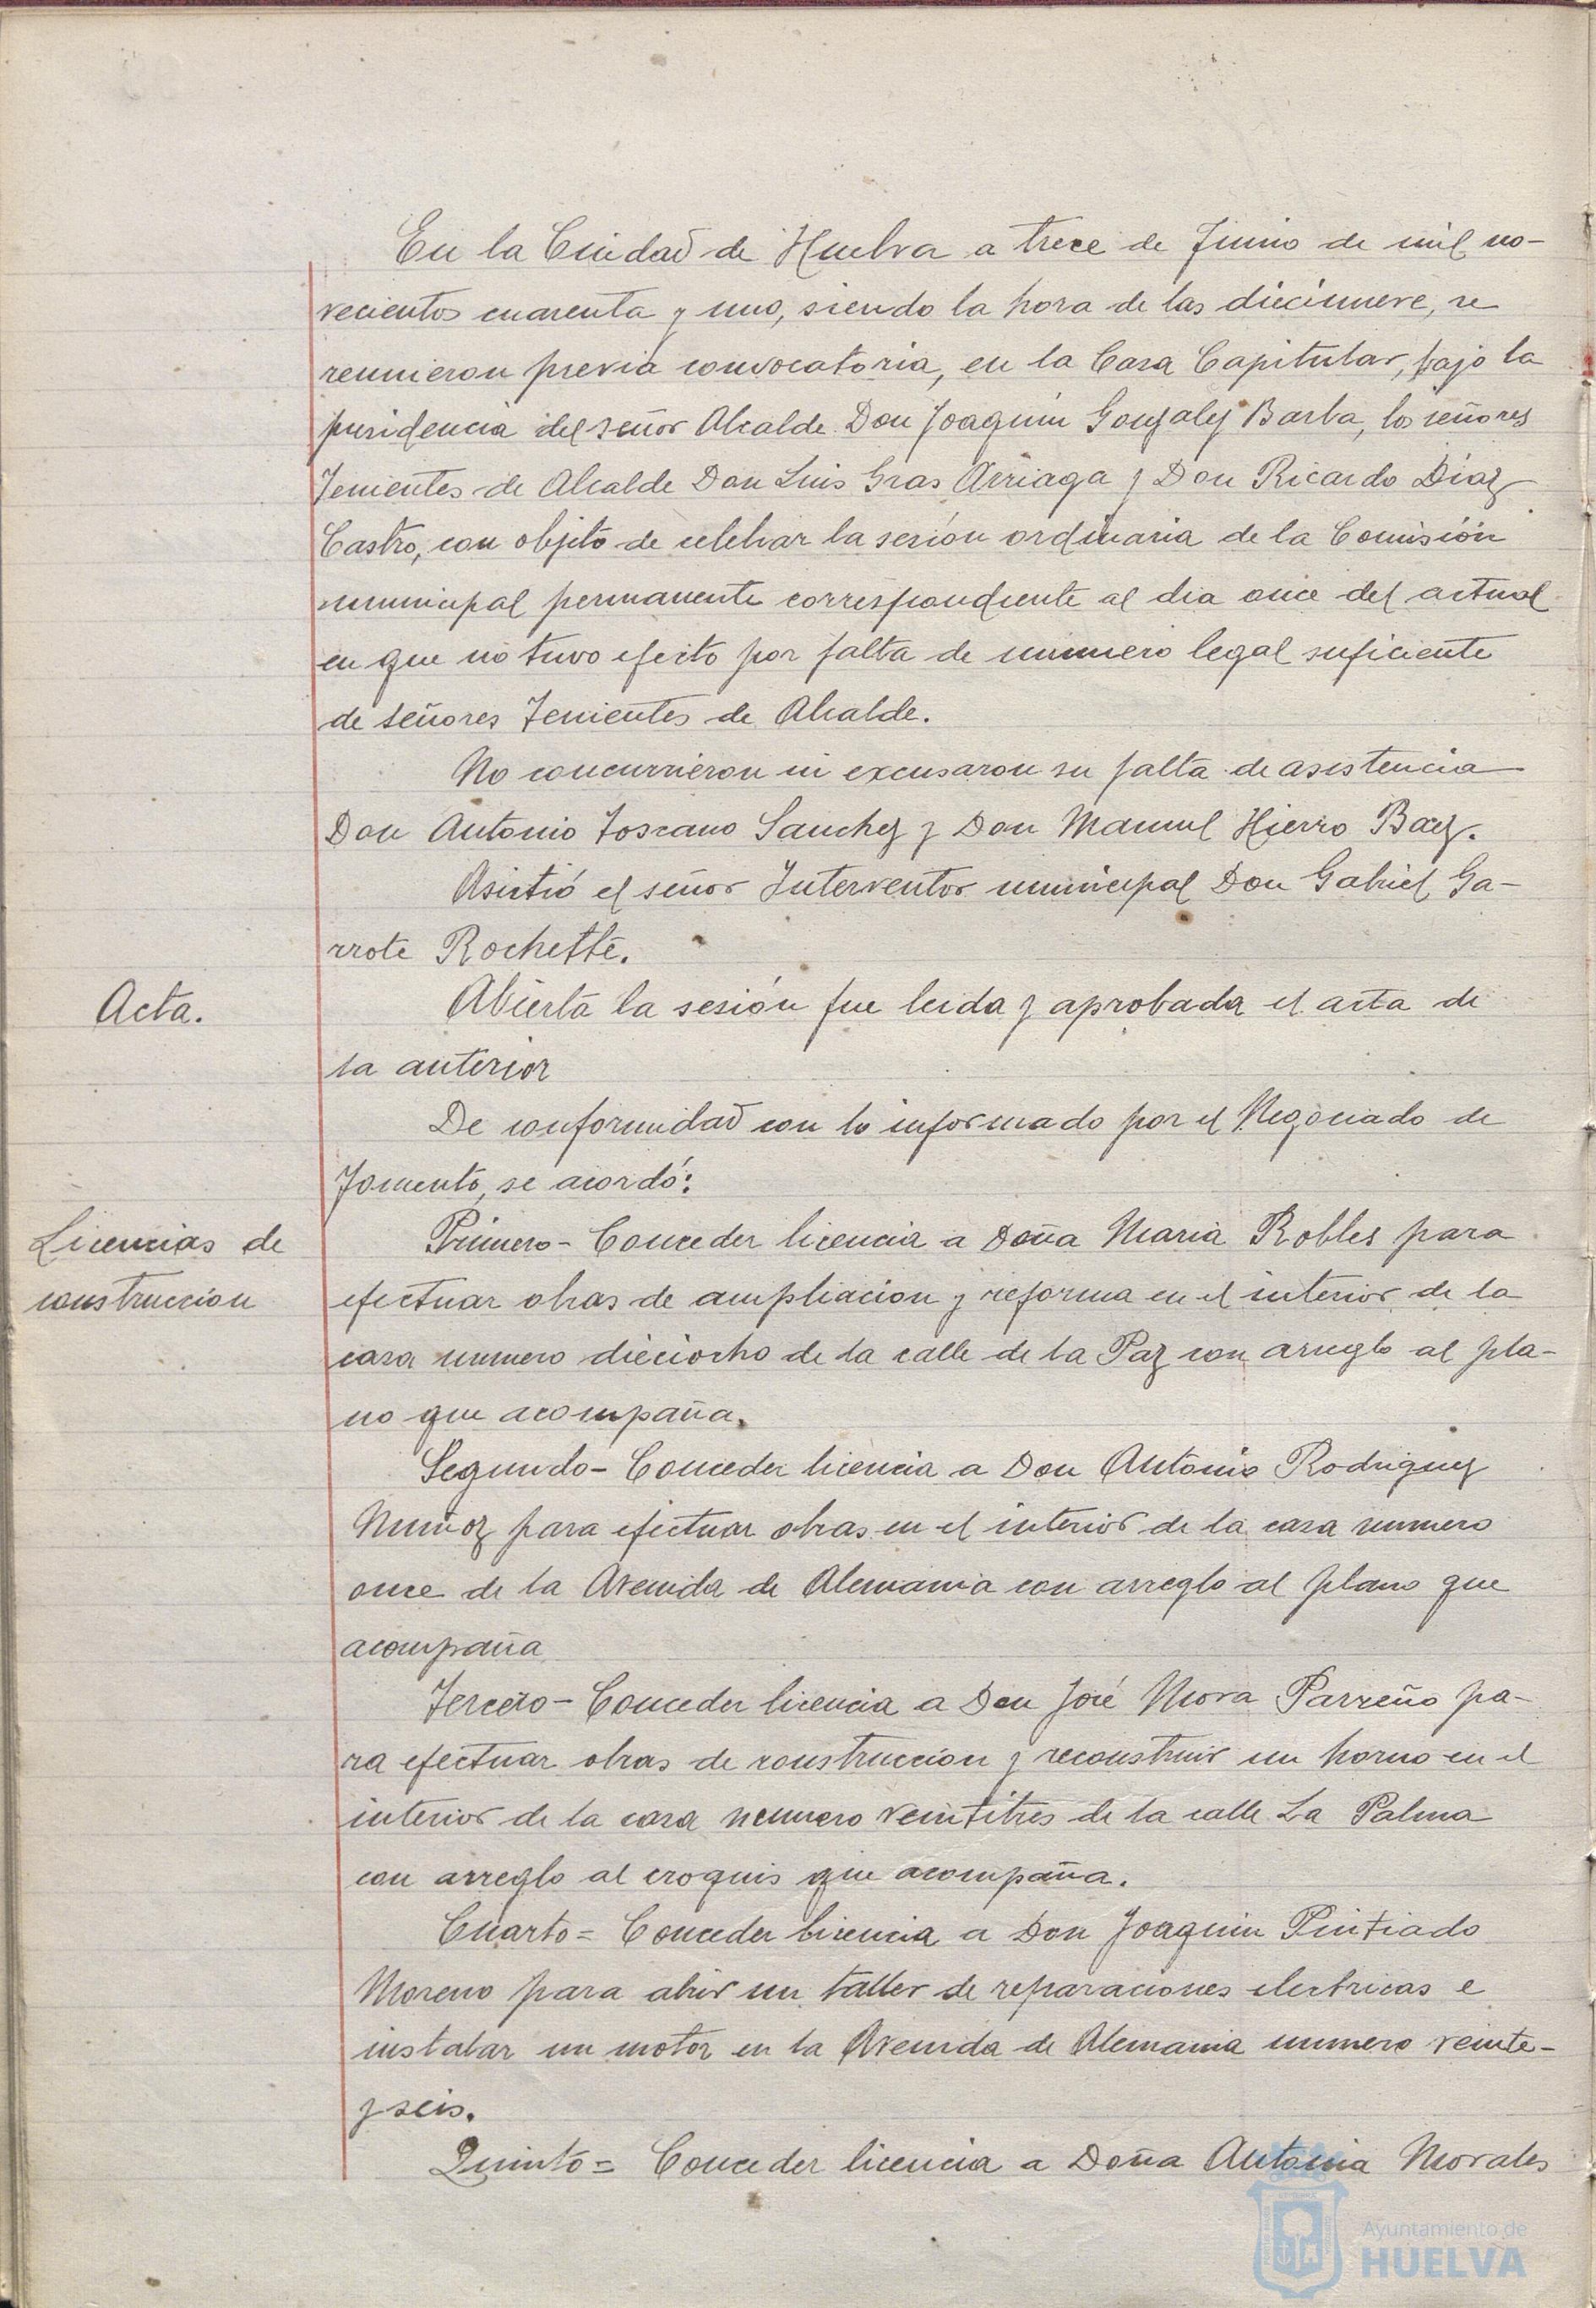 En la Ciudad de Huelva a trece de Junio de mil no-
vecientos cuarenta y uno, siendo la hora de las diecinueve, se
reunieron previa convocatoria, en la Casa Capitular, bajo la
presidencia del señor Alcalde Don Joaquin Gonzalez Barba, los señores
Tenientes de Alcalde Don Luis Gras Arriaga y Don Ricardo Díaz
Castro, con objeto de celebrar la sesión ordinaria de la Comisión
municipal permanente correspondiente al dia once del actual
en que no tuvo efecto por falta de numero legal suficiente
de señores Tenientes de Alcalde.
No concurrieron ni excusaron su falta de asistencia
Don Antonio Toscano Sanchez y Don Manuel Hierro Baez.
Asistió el señor Interventor municipal Don Gabriel Ga-
rrote Rochette.
Acta.
Abierta la sesión fue leida y aprobada el acta de
la anterior
De conformidad con lo informado por el Negociado de
Fomento, se acordó:
Licencias de
construccion
Primero - Conceder licencia a Doña Maria Robles para
efectuar obras de ampliacion y reforma en el interior de la
casa numero dieciocho de la calle de la Paz con arreglo al pla-
no que acompaña.
Segundo - Conceder licencia a Don Antonio Rodriguez
Muñoz para efectuar obras en el interior de la casa numero
once de la Avenida de Alemania con arreglo al plano que
acompaña
Tercero - Conceder licencia a Don José Mora Parreño pa-
ra efectuar obras de construccion y reconstruir un horno en el
interior de la casa numero veintitres de la calle La Palma
con arreglo al croquis que acompaña.
Cuarto = Conceder licencia a Don Joaquin Pintiado
Moreno para abrir un taller de reparaciones electricas e
instalar un motor en la Avenida de Alemania numero veinte-
y seis.
Quinto = Conceder licencia a Doña Antonia Morales
Ayuntamiento de
HUELVA